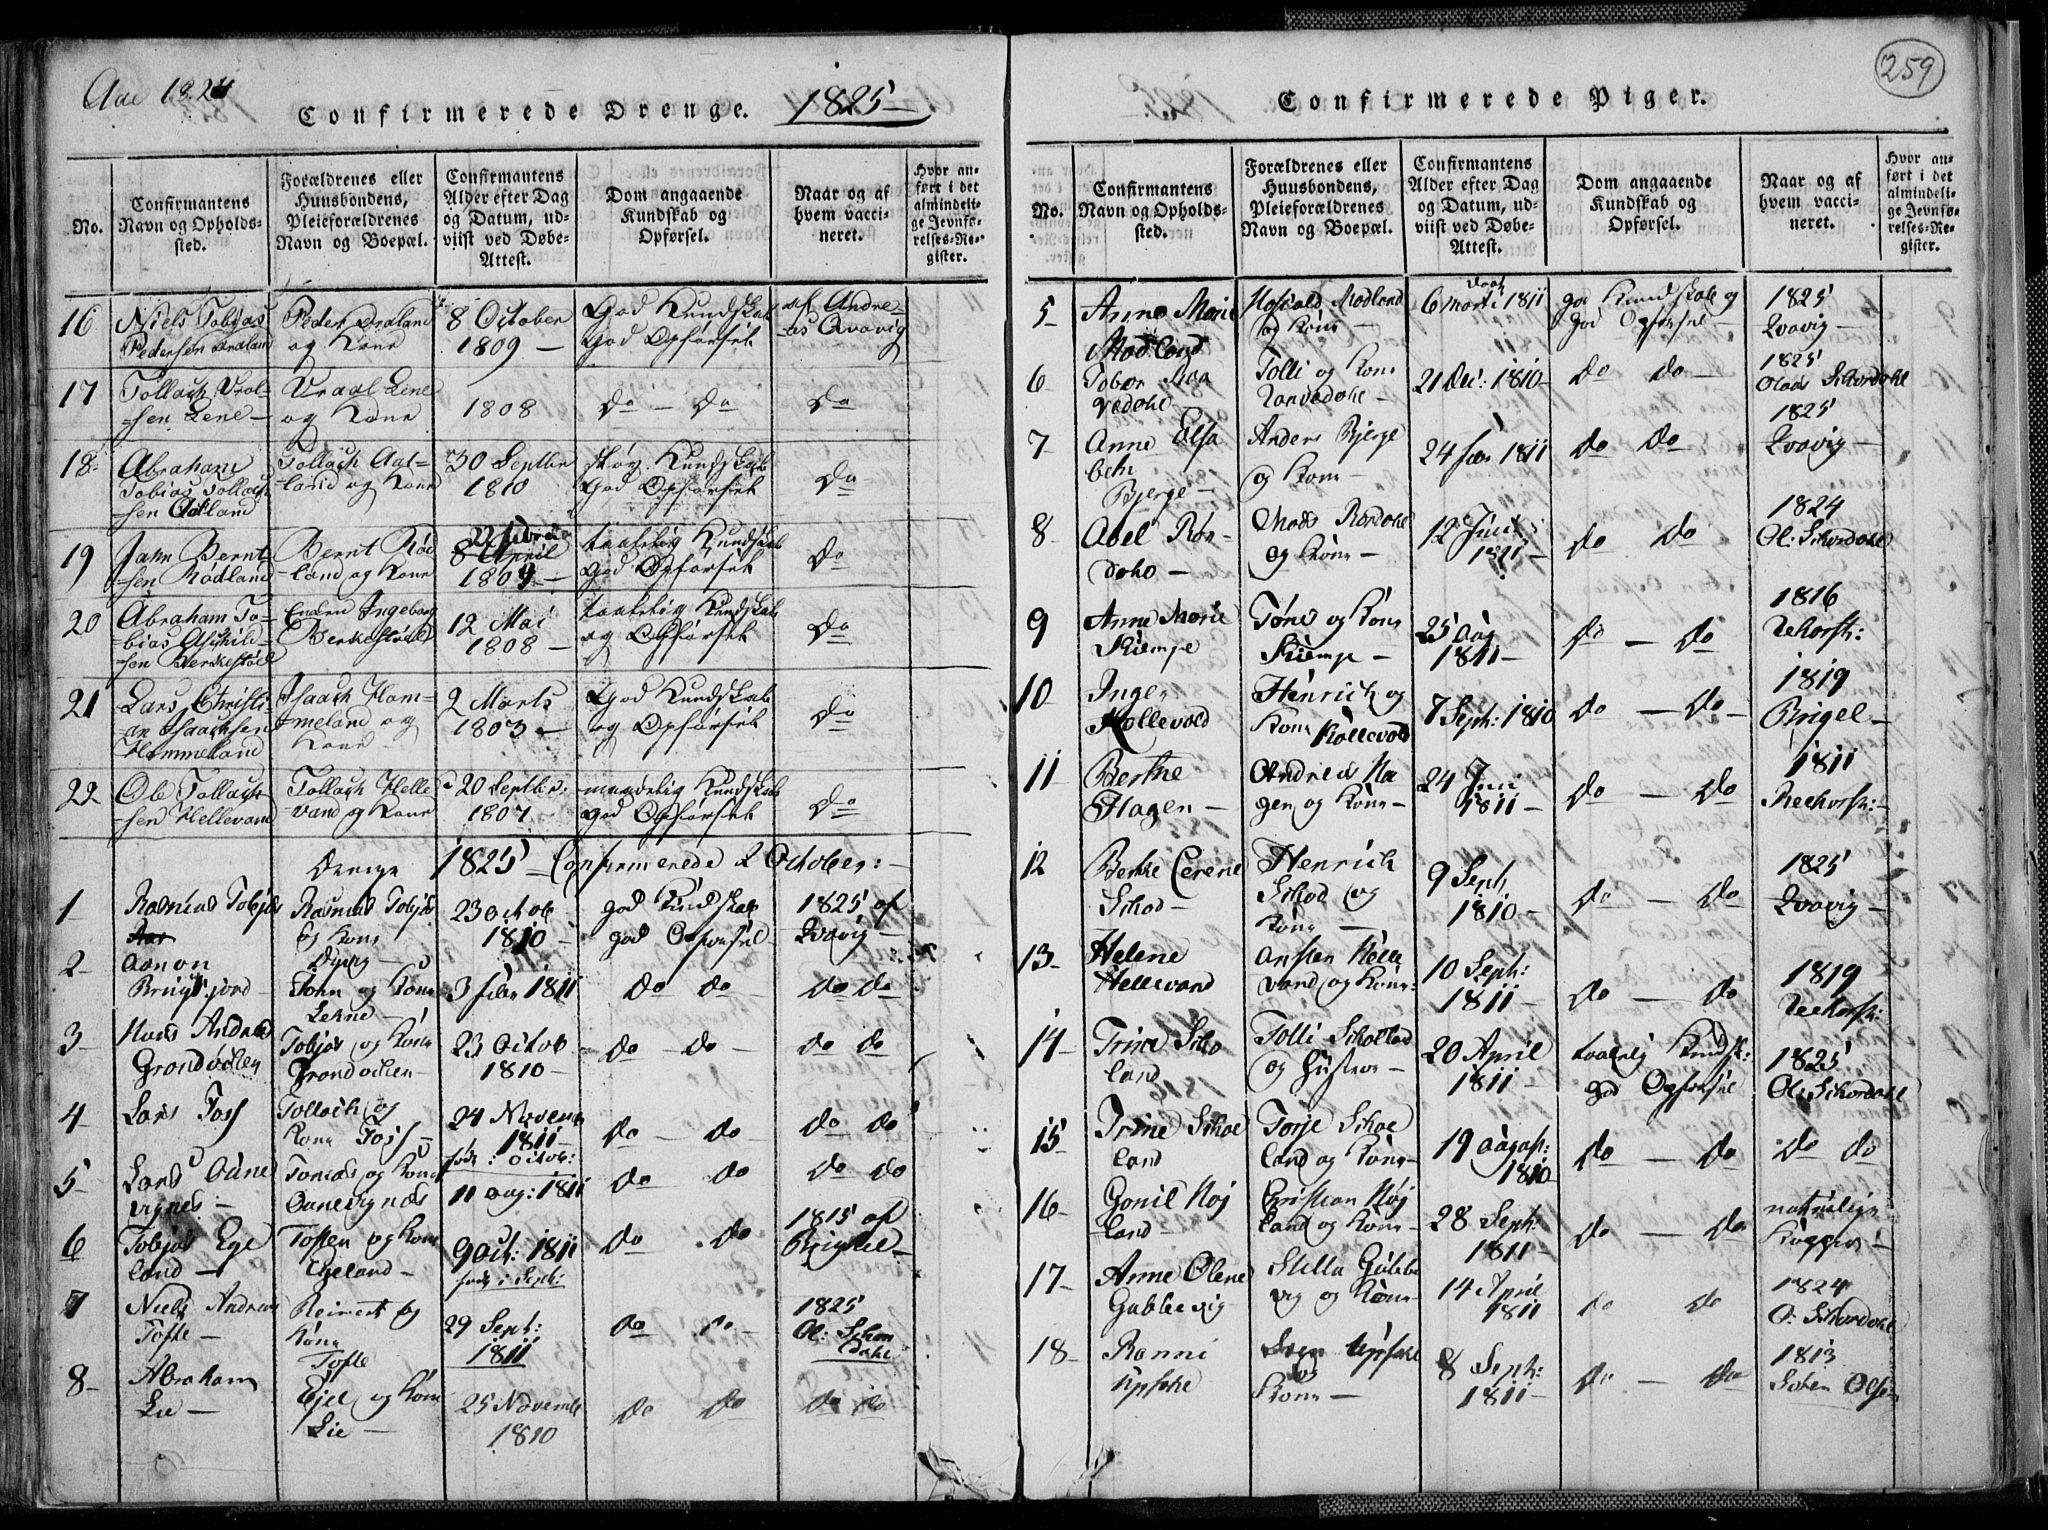 Aae 1824
Confirmerede Drenge. 1825
No.
Confirmantens Navn og Opholds-sted.
Forældrenes eller Huusbondens, Pleieforældrenes Navn og Boepæl.
Confirmantens Alder efter Dag og Datum, ud-viist ved Døbe-Attest.
Dom angaaende Kundskab og Opførsel.
Naar og af hvem vacci-neret.
Hvor an-ført i det almindeli-ge Jevnfø-relses-Re-gister.
16 Niels Tobias Pedersen Braland
Peder Braland og Kone
8 October 1809 —
God Kundskab God Opførsel
af Andre-as Qvavig
17 Tollach Vrol-sen Lene —
Vraal Lene og Kone
1808
Do — Do
Do
18 Abraham Tobias Tollach-sen Aatland
Tollach Aat-land og Kone
30 Septbr 1810
Kundskab God Opførsel
Do
19 Jahn Bernt-sen Rødland
Bernt Rød-land og Kone
8 April 1804 —
taalelig Kundskab God Opførsel
Do
20 Abraham To-bias Aschild-sen Berkestøel
Enken Ingeborg Berkestøel
12 Mai 1808 —
taalelig Kundskab og Opførsel
Do
21 Lars Christi-an Isaachsen Hammeland
Isaach Ham-meland og Kone
2 Marts 1803 —
God Kundskab og Opførsel
Do
22 Ole Tollach-sen Hellevand
Tollach Helle-vand og Kone
20 Septbr: 1807
maadelig Kundskab God Opførsel
Do
Drenge 1825 — Confirmerede 2 October: —
1 Rasmus Tobjøs
Rasmus Tobjøs og Kone
23 Octob 1810 —
god Kundskab god Opførsel —
1825 af Qvavig —
2 Aanon
John og Kone
3 1811
Do Do —
Do Do
3 Andreas Grondvolen
Tobjøs og Kone Grondvolen —
23 Octob 1810 —
Do — Do
Do Do
4 Lars Foss
Tollach og Kone Foss —
24 Novemb 1811 —
Do — Do
Do Do
5 Lars Oune vignes —
Tomas og Kone Ounevignes
fød: Octob: 11 Aug: 1811
Do Do
Do Do
6 Tobjøs Ege land —
og Kone Egeland —
9 Oct: 1811 fød i Sept:
Do Do
1815 af
7 Niels Andreas Tofte —
Reinert og Kone Tofte
29 Sept: 1811
Do Do —
1825 Ol: Skordahl
8 Abraham Lie —
Ejel og Kone Lie —
25 Novemb 1810
Do Do
Do Do
259
Confirmerede Piger.
No.
Confirmantens Navn og Opholds-sted.
Forældrenes eller Huusbondens, Pleieforældrenes Navn og Boepæl.
Confirmantens Alder efter Dag og Datum, ud-viist ved Døbe-Attest.
Dom angaaende Kundskab og Opførsel.
Naar og af hvem vacci-neret.
Hvor an-ført i det almindeli-ge Jevnfø-relses-Re-gister.
5 Anne Marie Modland
Modland og Kone —
6 Marti 1811
god Kundskab og god Opførsel —
1825 Qvavig —
6
Tolli og Kone
21 Dec: 1810 —
Do Do —
1825 Olaus Skordahl
7 Anne Elsa beth Bjerge —
Anders Bjerge og Kone —
24 1811
Do Do
1825 Qvavig —
8 Abel Røn-dohl —
Mads og Kone —
12 Junii 1811 —
Do Do
1824 Ol: Skordahl
9 Anne Marie Kiempe
Tønes og Kone Kiempe —
25 Aug 1811 —
Do — Do
1816
10 Inger Kollevold
Henrich og Kone Kollevold
7 Sept: 1810
Do — Do —
1819
11 Berthe Hagen —
Andreas Ha gen og Kone —
24 Juni 1811 —
Do — Do
1811
12 Berthe Cerene Skod —
Henrich Skod og Kone —
9 Sept, 1810 —
Do — Do
1825 Qvavig —
13 Helene Hellevand
Helle vand og Kone:
10 Sept: 1811 —
Do — Do
1819
14 Trine Sko land
Tolli Skolland og Hustrue —
20 April 1811 —
taalelig Kundsk: god Opførsel
1825 Ol: Skordahl
15 Trine Skoe land
Torje Skoe land og Kone —
19 1810 —
Do — Do
Do Do
16 Gonil Høj land —
Christian Høj land og Kone —
28 Sept: 1811 —
Do — Do
naturlige Kopper —
17 Anne Olene Gabbevig —
vig og Kone —
14 April 1811
Do Do
1824 O: Skordahl
18 Ranni Upsahl
Upsahl og Kone —
8 Sept: 1811 —
Do — Do
1813